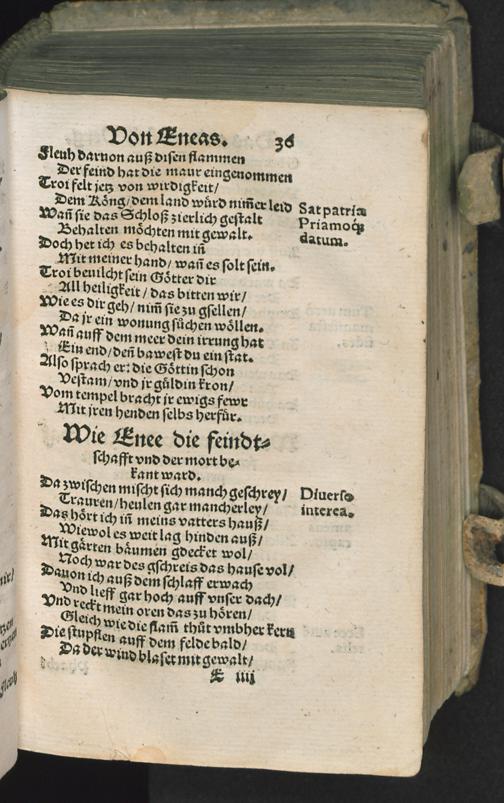 Von Eneas. 36
Fleuh darvon auß disen flammen
Der feind hat die maur eingenommen
Troi felt jetz von wirdigkeit/
Dem Köng/ dem land würd nim̃er leid
Sat patriæ
Wañ sie das Schloß zierlich gestalt
Priamoq́;
Behalten möchten mit gewalt.
datum.
Doch het ich es behalten iñ
Mit meiner hand/ wañ es solt sein.
Troi bevilcht sein Götter dir
All heiligkeit/ das bitten wir/
Wie es dir geh/ nim̃ sie zu gsellen/
Da jr ein wonung süchen wöllen.
Wañ auff dem meer dein irrung hat
Ein end/ deñ bawest du ein stat.
Also sprach er: die Göttin schon
Vestam/ vnd jr güldin kron/
Vom tempel bracht jr ewigs fewr
Mit jren henden selbs herfür.
Wie Enee die feindt-
schafft vnd der mort be-
kant ward.
Da zwischen mischt sich manch geschrey/
Diverso
Trauren/ heulen gar mancherley/
interea.
Das hört ich iñ meins vatters hauß/
Wiewol es weit lag hinden auß/
Mit gärten bäumen gdecket wol/
Noch war des gschreis das hause vol/
Davon ich auß dem schlaff erwach
Vnd lieff gar hoch auff vnser dach/
Vnd reckt mein oren das zu hören/
Gleich wie die flam̃ thüt vmbher kern
Die stupflen auff dem felde bald/
Da der wind blaset mit gewalt/
E iiij